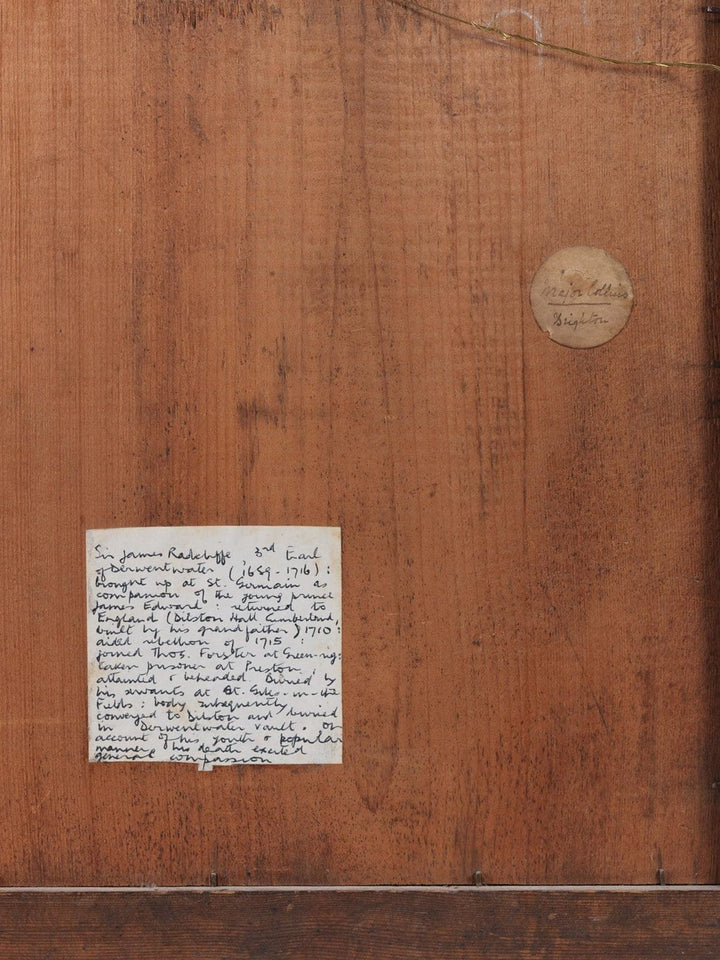 Major Collins
Brighton
Sir James Radcliffe 3rd Earl
of Derwentwater (1689-1716):
brought up at St. Germain as
companion of the young prince
James Edward: returned to
England (Dilston Hall Cumberland,
built by his grandfather) 1710:
aided rebellion of 1715:
joined Thos. Forster at Green-rig:
taken prisoner at Preston,
attainted & beheaded. Buried by
his servants at St. Giles-in-the
Fields: body subsequently
conveyed to Dilston and buried
in Derwentwater vault. On
account of his youth & popular
manners his death excited
general compassion